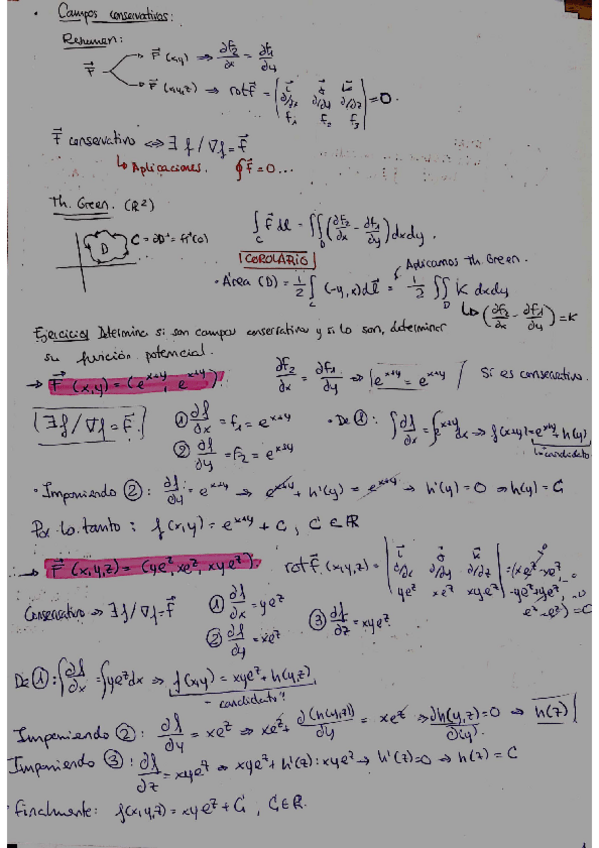 • Campos conservativos:
Resumen:
F⃗ → F⃗(x,y) ⇒ ∂f₂/∂x = ∂f₁/∂y
→ F⃗(x,y,z) ⇒ rot F⃗ = | i⃗ j⃗ k⃗ ; ∂/∂x ∂/∂y ∂/∂z ; f₁ f₂ f₃ | = 0.
F⃗ conservativo ⇔ ∃ f / ∇f = F⃗
↳ Aplicaciones. ∮F⃗ = 0...
Th. Green. (R²)
∫_C F⃗ dl = ∬_D (∂f₂/∂x - ∂f₁/∂y) dxdy.
D C = ∂D⁺ =
COROLARIO
• Área (D) = 1/2 ∫_C (-y, x) dl⃗ = 1/2 ∬_D k dxdy
Aplicamos Th. Green.
↳ (∂f₂/∂x - ∂f₁/∂y) = k
Ejercicio Determina si son campos conservativos y si lo son, determinar
su función potencial.
→ F⃗(x,y) = (e^{x+y}, e^{x+y}). ∂f₂/∂x = ∂f₁/∂y ⇒ |e^{x+y} = e^{x+y}| Sí es conservativo.
|∃f / ∇f = F⃗.| ① ∂f/∂x = f₁ = e^{x+y} • De ①: ∫∂f/∂x = ∫e^{x+y} dx ⇒ f(x,y) = e^{x+y} + h(y)
↳ candidato
② ∂f/∂y = f₂ = e^{x+y}
• Imponiendo ②: ∂f/∂y = e^{x+y} ⇒ e^{x+y} + h'(y) = e^{x+y} ⇒ h'(y) = 0 ⇒ h(y) = C
Por lo tanto: f(x,y) = e^{x+y} + C, C ∈ R
→ F⃗(x,y,z) = (ye^z, xe^z, xye^z). rot F⃗ (x,y,z) = | i⃗ j⃗ k⃗ ; ∂/∂x ∂/∂y ∂/∂z ; ye^z xe^z xye^z | = (xe^z - xe^z, -ye^z + ye^z, e^z - e^z) = 0
Conservativo ⇒ ∃f / ∇f = F⃗ ① ∂f/∂x = ye^z
② ∂f/∂y = xe^z ③ ∂f/∂z = xye^z
De ①: ∫∂f/∂x = ∫ye^z dx ⇒ f(x,y) = xye^z + h(y,z)
- candidato?
Imponiendo ②: ∂f/∂y = xe^z ⇒ xe^z + ∂(h(y,z))/∂y = xe^z ⇒ ∂h(y,z)/∂(y) = 0 ⇒ h(z)
Imponiendo ③: ∂f/∂z = xye^z ⇒ xye^z + h'(z) : xye^z ⇒ h'(z) = 0 ⇒ h(z) = C
• Finalmente: f(x,y,z) = xye^z + C, C∈R.